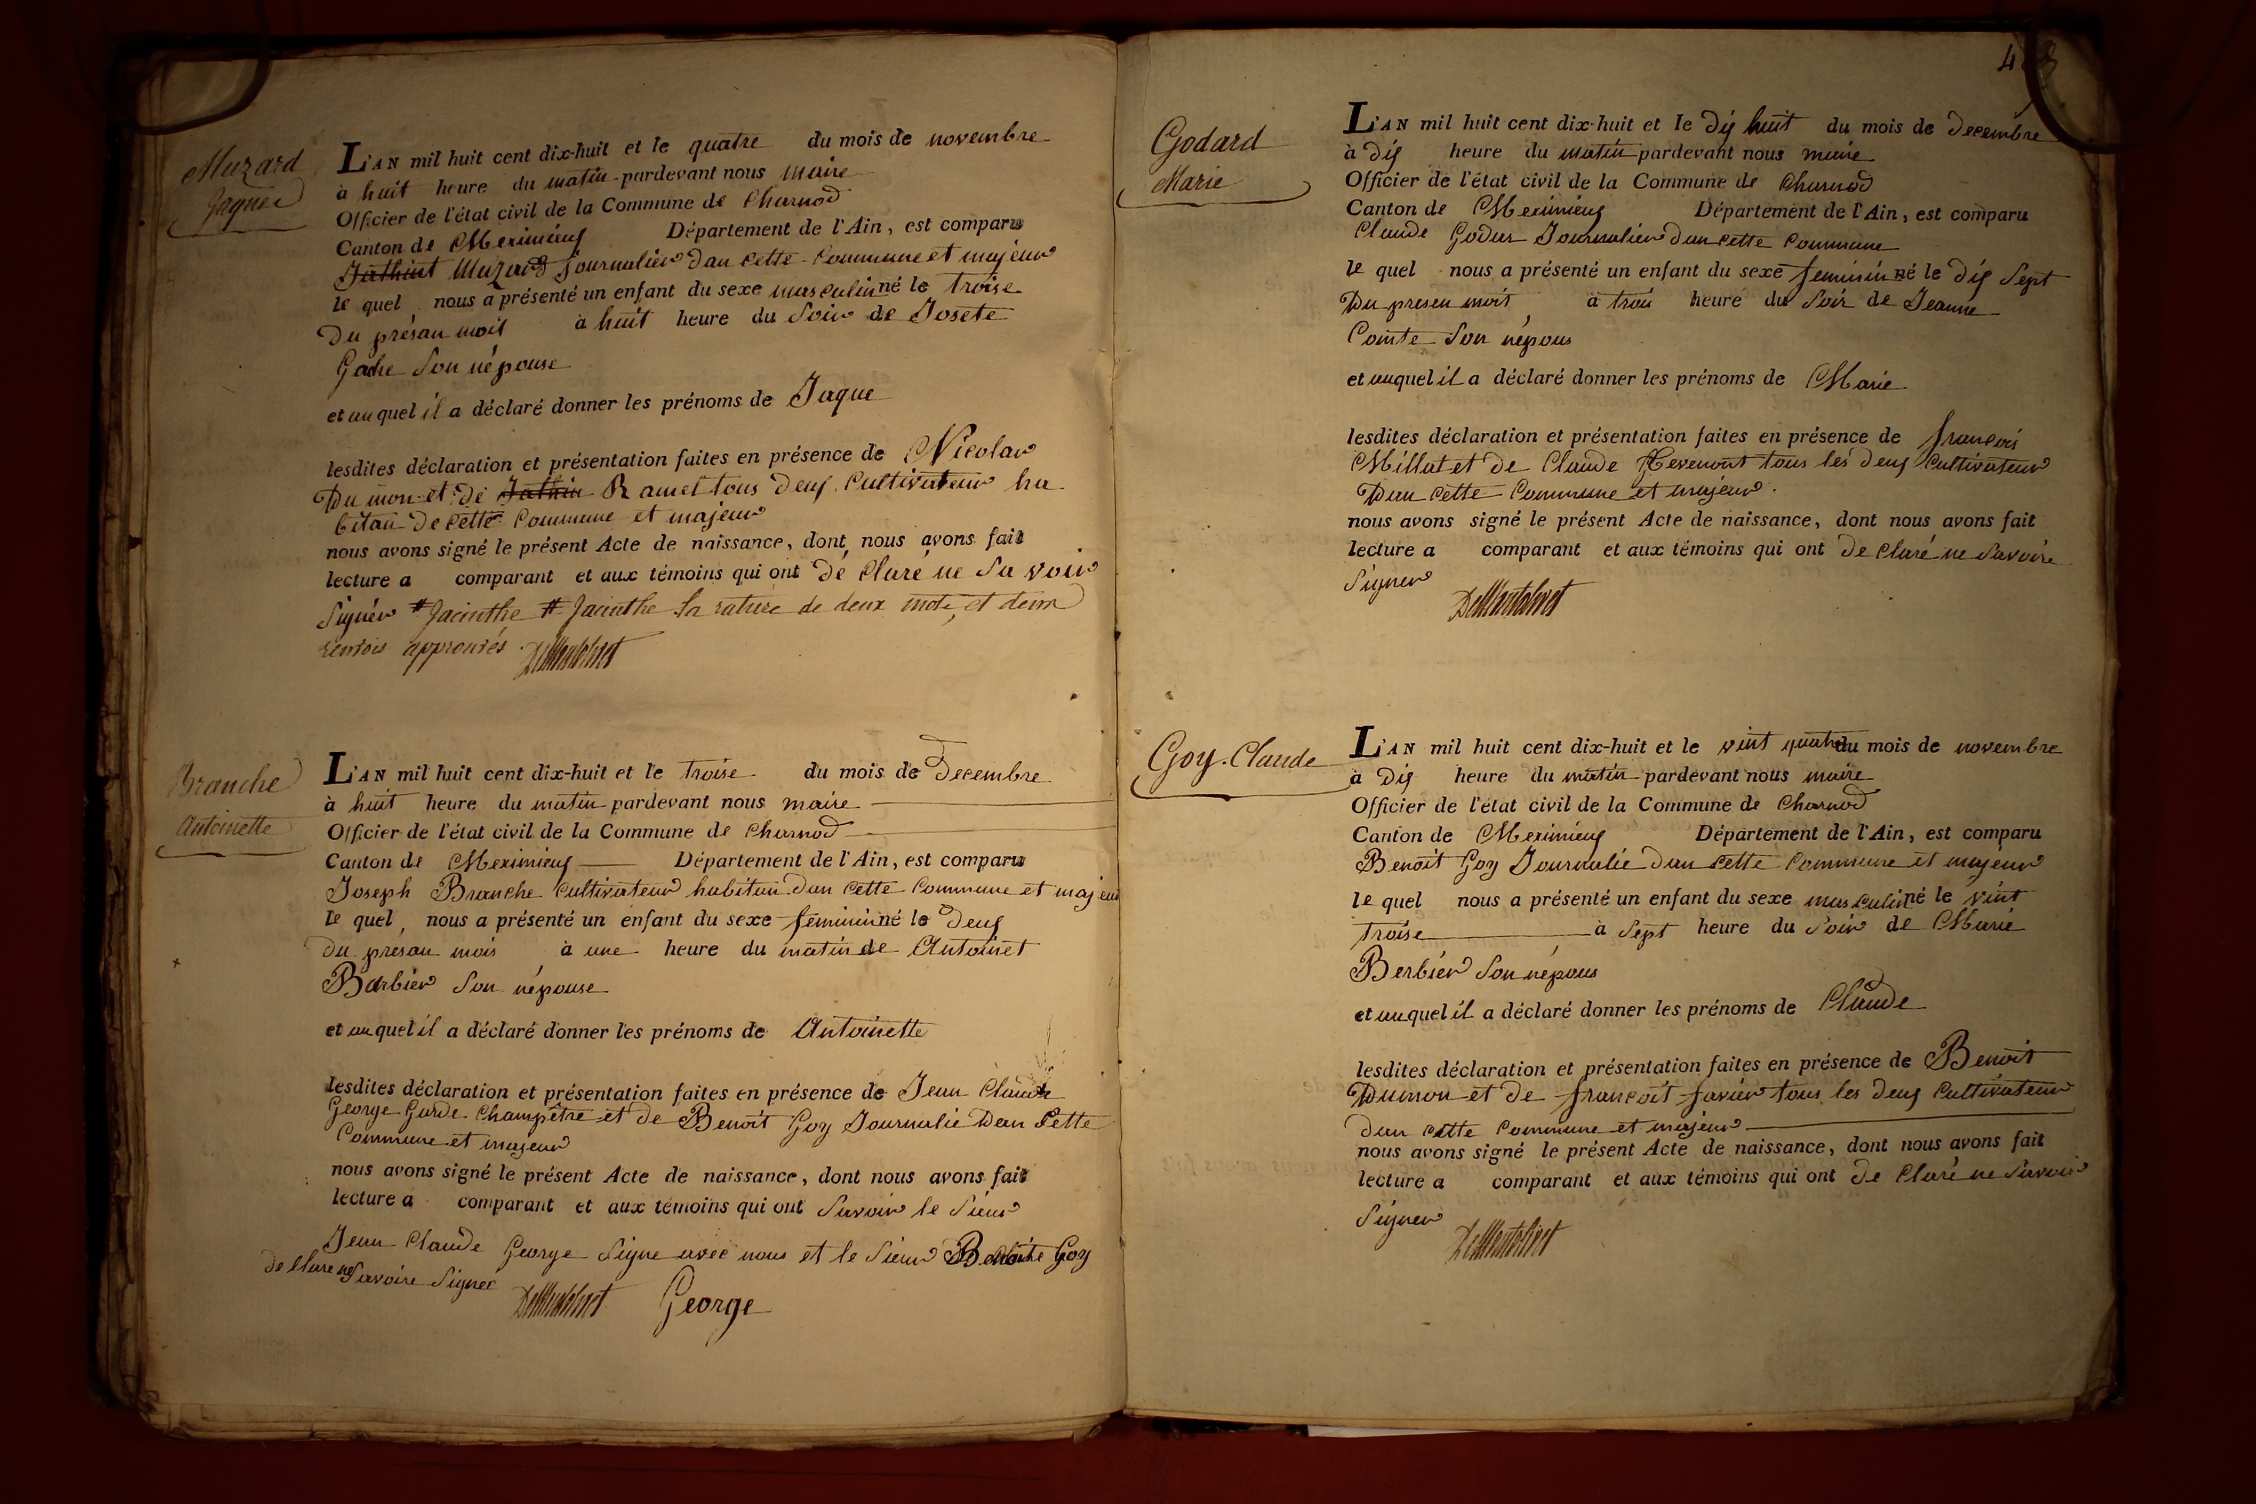 Muzard
Jaques
L'AN mil huit cent dix-huit et le quatre du mois de novembre
à huit heure du matin pardevant nous maire
Officier de l'état civil de la Commune de Charnod
Canton de Meximieuf Département de l'Ain, est comparu
Jathint Muzard Journalier dan cette Commune et majeur
le quel nous a présenté un enfant du sexe masculin né le troise
Du présan mois à huit heure du Soir de Josete
Gache Son népouse
et auquel il a déclaré donner les prénoms de Jaque
lesdites déclaration et présentation faites en présence de Nicolas
Du mon et de Jathin Ramel tous deuf Cultivateur ha
bitan de cette Commune et majeur
nous avons signé le présent Acte de naissance, dont nous avons fait
lecture a comparant et aux témoins qui ont dé Claré ne Sa voir
Signér # Jacinthe # Jacinthe la rature de deux mots, et deux
renvois approuvés.
Branche
Antoinette
L'AN mil huit cent dix-huit et le troise du mois de Decembre
à huit heure du matin pardevant nous maire
Officier de l'état civil de la Commune de Charnod
Canton de Meximieuf Département de l'Ain, est comparu
Joseph Branche Cultivateur habitan dan cette Commune et majeur
le quel, nous a présenté un enfant du sexe feminin né le Deuf
Du presan mois à une heure du matin de Antoinet
Barbier Son népouse
et auquel il a déclaré donner les prénoms de Antoinette
lesdites déclaration et présentation faites en présence de Jean Claude
George Garde Champêtre et de Benoit Goy Journalié Dan Cette
Commune et majeur
nous avons signé le présent Acte de naissance, dont nous avons fait
lecture a comparant et aux témoins qui ont Savoir le Sieur
Jean Claude George Signe avec nous et le Sieur Benoite Goy
de Clare ne Savoire Signer
George
Godard
Marie
L'AN mil huit cent dix-huit et le Dif huit du mois de Decembre
à Dif heure du matin pardevant nous maire
Officier de l'état civil de la Commune de Charnod
Canton de Meximieuf Département de l'Ain, est comparu
Claude Godar Journalier dan cette Commune
le quel nous a présenté un enfant du sexe feminin né le dif Sept
Du presen mois à trois heure du Soir de Jeanne
Comte Son népous
et auquel il a déclaré donner les prénoms de Marie
lesdites déclaration et présentation faites en présence de françois
Millat et de Claude Tevenont tous les deuf Cultivateur
Dan cette Commune et majeur.
nous avons signé le présent Acte de naissance, dont nous avons fait
lecture a comparant et aux témoins qui ont De Claré ne Savoire
Signer
Goy. Claude
L'AN mil huit cent dix-huit et le vint quatre du mois de novembre
à Dif heure du matin pardevant nous maire
Officier de l'état civil de la Commune de Charnod
Canton de Meximieuf Département de l'Ain, est comparu
Benoit Goy Journalié Dan cette Commune et majeur
le quel nous a présenté un enfant du sexe masculin né le vint
troise à Sept heure du Soir de Marie
Berbier Son népous
et auquel il a déclaré donner les prénoms de Claude
lesdites déclaration et présentation faites en présence de Benoit
Dumon et de françoit favier tous les deuf Cultivateur
dan cette Commune et majeur
nous avons signé le présent Acte de naissance, dont nous avons fait
lecture a comparant et aux témoins qui ont de Claré ne Savoir
Signer